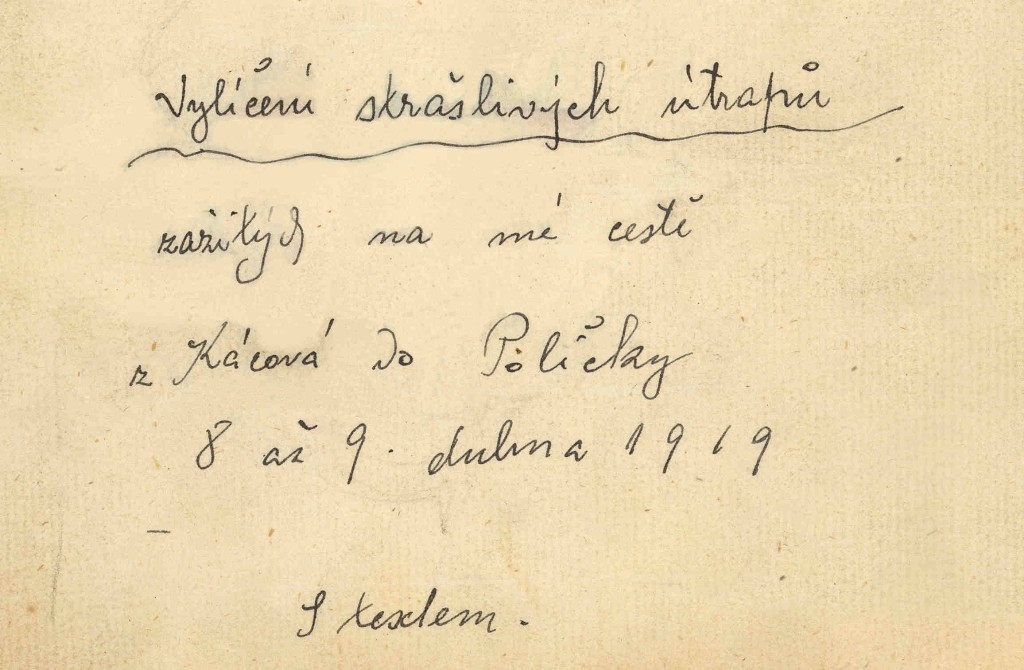 Vylíčení strašlivých útrapů
zažitých na mé cestě
z Kácová do Poličky
8 až 9. dubna 1919
S textem.